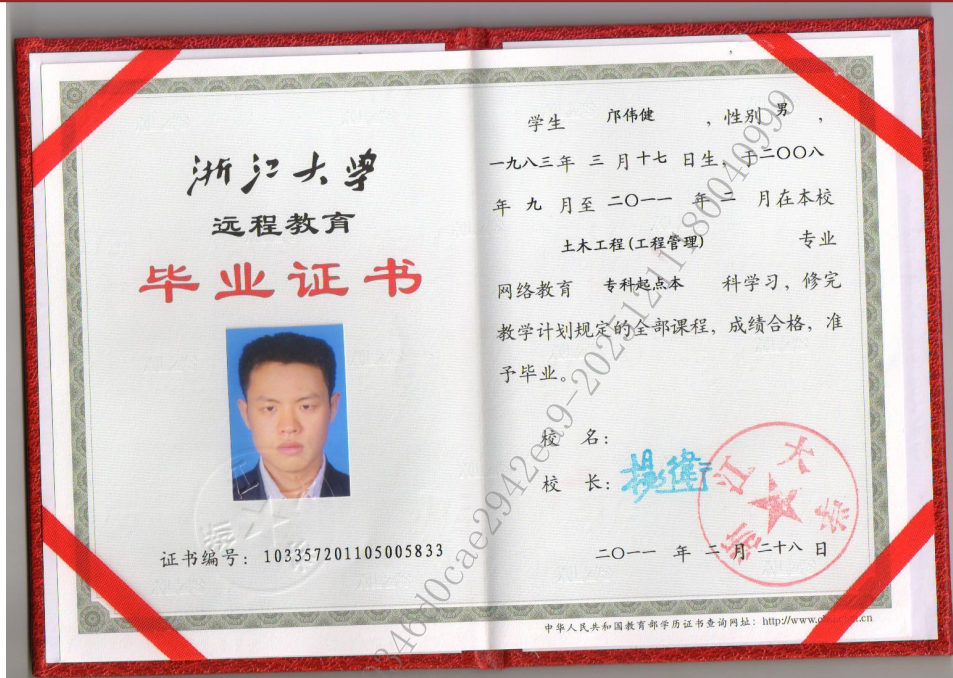 浙江大学
远程教育
毕业证书
证书编号：103357201105005833
学生 邝伟健 ，性别 男 ，
一九八三年 三 月 十七 日生，于二〇〇八
年 九 月至 二〇一一 年 二 月在本校
土木工程(工程管理) 专业
网络教育 专科起点本 科学习，修完
教学计划规定的全部课程，成绩合格，准
予毕业。
校 名：
校 长：杨卫
浙江大学
二〇一一 年 二 月 二十八 日
中华人民共和国教育部学历证书查询网址：http://www.
346d0cae2942ea9-20251211118004099